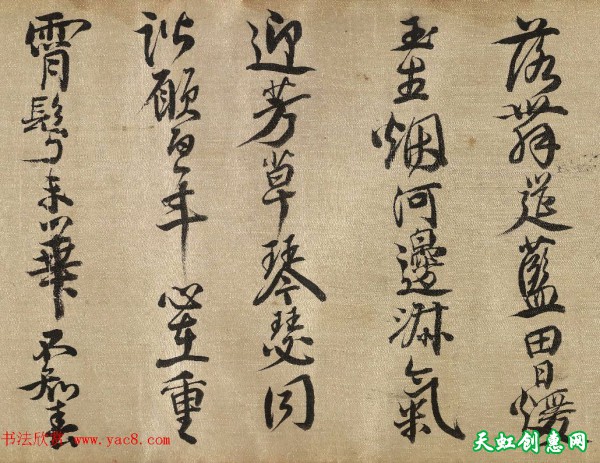 落舞筵藍田日煖
玉生烟河邊淑氣
迎芳草琴瑟同
諧願百年心在重
霄鬢未華不知
书法欣赏 www.yac8.com
天虹创意网